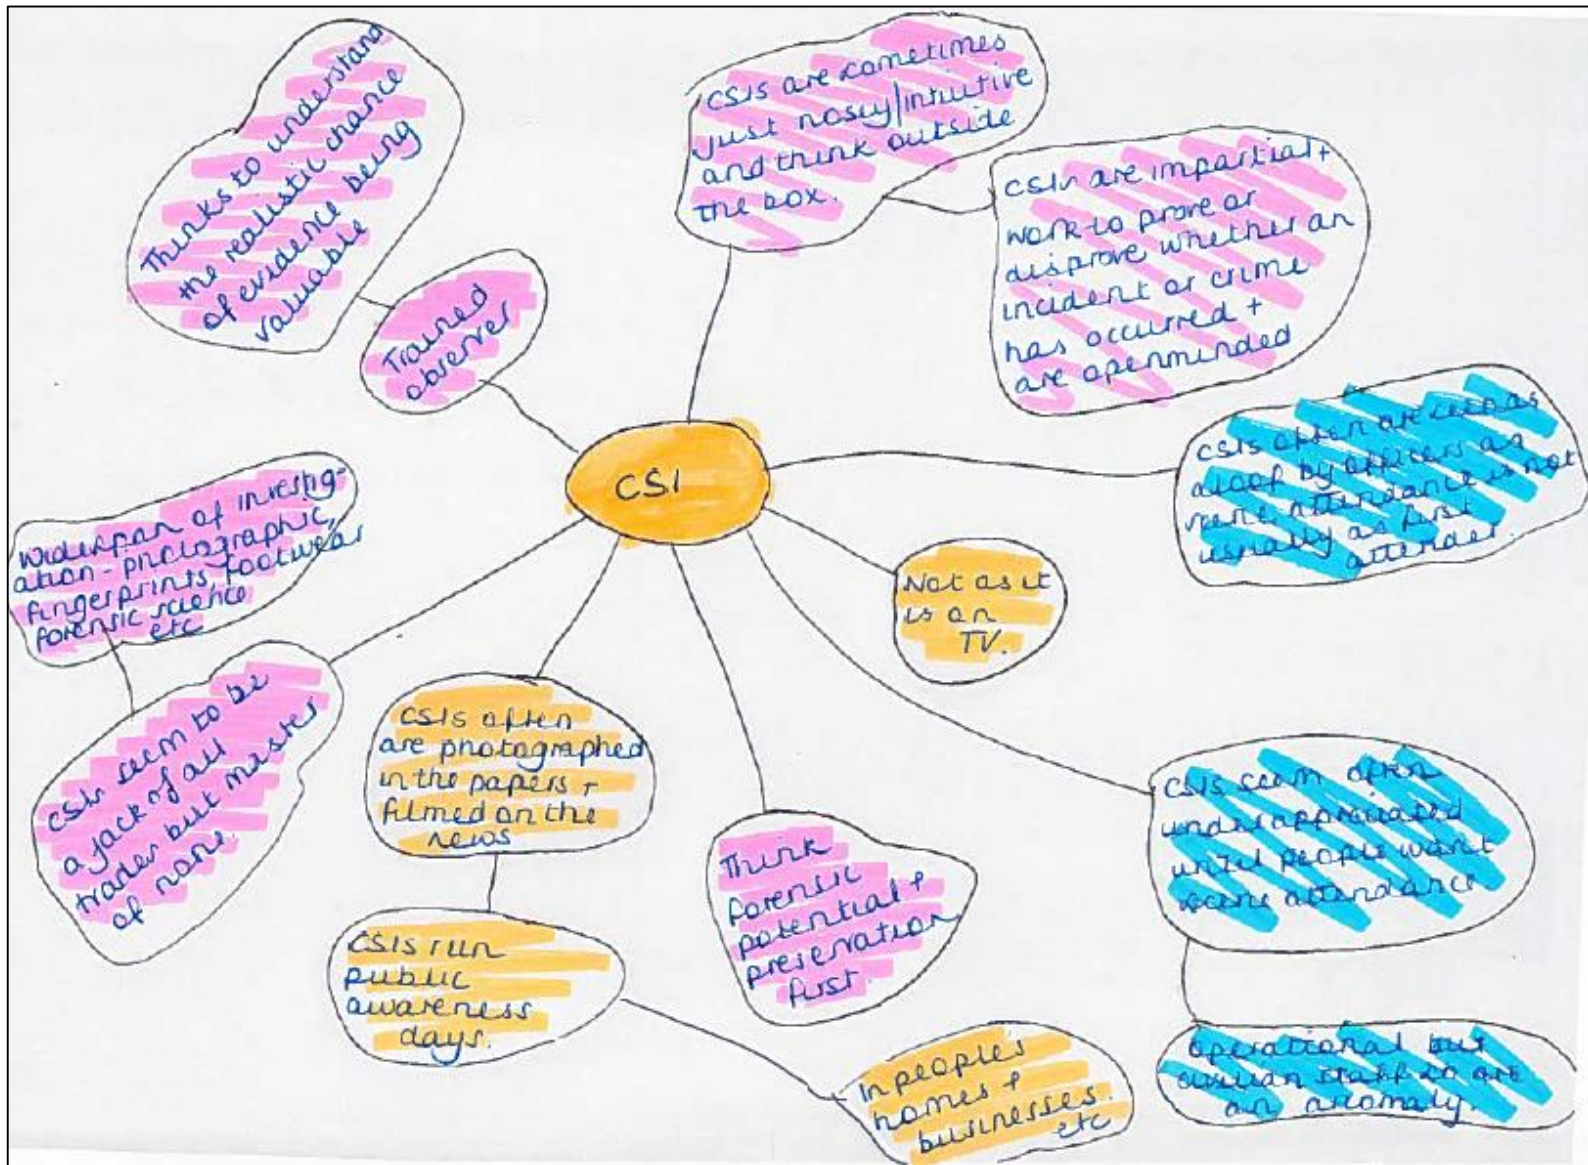 Thinks to understand
the realistic chance
of evidence being
valuable
Trained
observer
CSIs are sometimes
just nosey/intuitive
and think outside
the box.
CSIs are impartial +
work to prove or
disprove whether an
incident or crime
has occurred +
are openminded
CSIs often are seen as
aloof by officers as
scene attendance is not
usually as first
attender.
CSI
Not as it
is on
TV.
Widerspan of investig-
ation - photographic,
fingerprints, footwear
forensic science
etc
CSIs seem to be
a jack of all
trades but master
of none.
CSIs often
are photographed
in the papers +
filmed on the
news
CSIs run
public
awareness
days.
In peoples
homes +
businesses.
etc
Think
forensic
potential +
preservation
first.
CSIs seem often
under appreciated
until people want
scene attendance
Operational but
civilian staff so are
an anomaly.